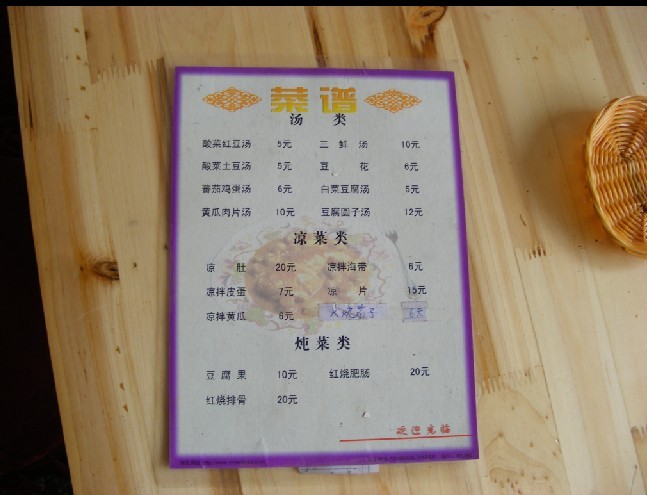 菜谱
汤 类
酸菜红豆汤 5元 三鲜汤 10元
酸菜土豆汤 5元 豆花 6元
蕃茄鸡蛋汤 6元 白菜豆腐汤 5元
黄瓜肉片汤 10元 豆腐圆子汤 12元
凉菜类
凉肚 20元 凉拌海带 6元
凉拌皮蛋 7元 凉片 15元
凉拌黄瓜 6元 火烧茄子 6元
炖菜类
豆腐果 10元 红烧肥肠 20元
红烧排骨 20元
欢迎光临